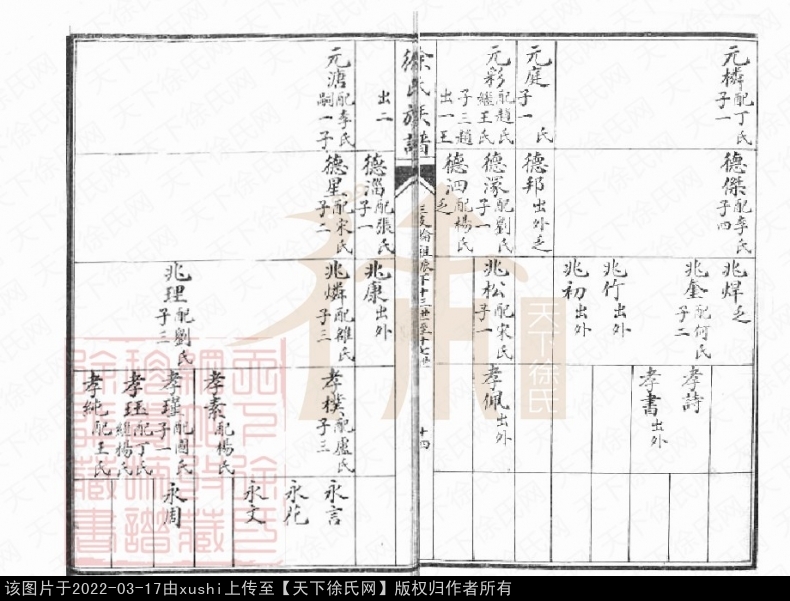 元橉配丁氏
子一
元庭 氏
子一
元彩配趙氏
繼王氏
子三趙
出一王
德傑配李氏
子四
德邦出外乏
德濛配劉氏
子一
德泗配楊氏
乏
兆焊乏
兆奎配何氏
子二
兆竹出外
兆初出外
兆松配宋氏
子一
孝詩
孝書出外
孝佩出外
徐氏族譜
三支倫祖派下十三世至十七世
十四
出二
元溏配李氏
嗣一子
德淄配張氏
子一
德星配宋氏
子二
兆康出外
兆燐配雒氏
子三
兆理配劉氏
子三
孝樸配盧氏
子三
孝素配楊氏
孝瑾配閻氏
子一
孝珏配丁氏
繼楊氏
孝純配王氏
永言
永花
永文
永周
天下徐氏网
该图片于2022-03-17由xushi上传至【天下徐氏网】版权归作者所有